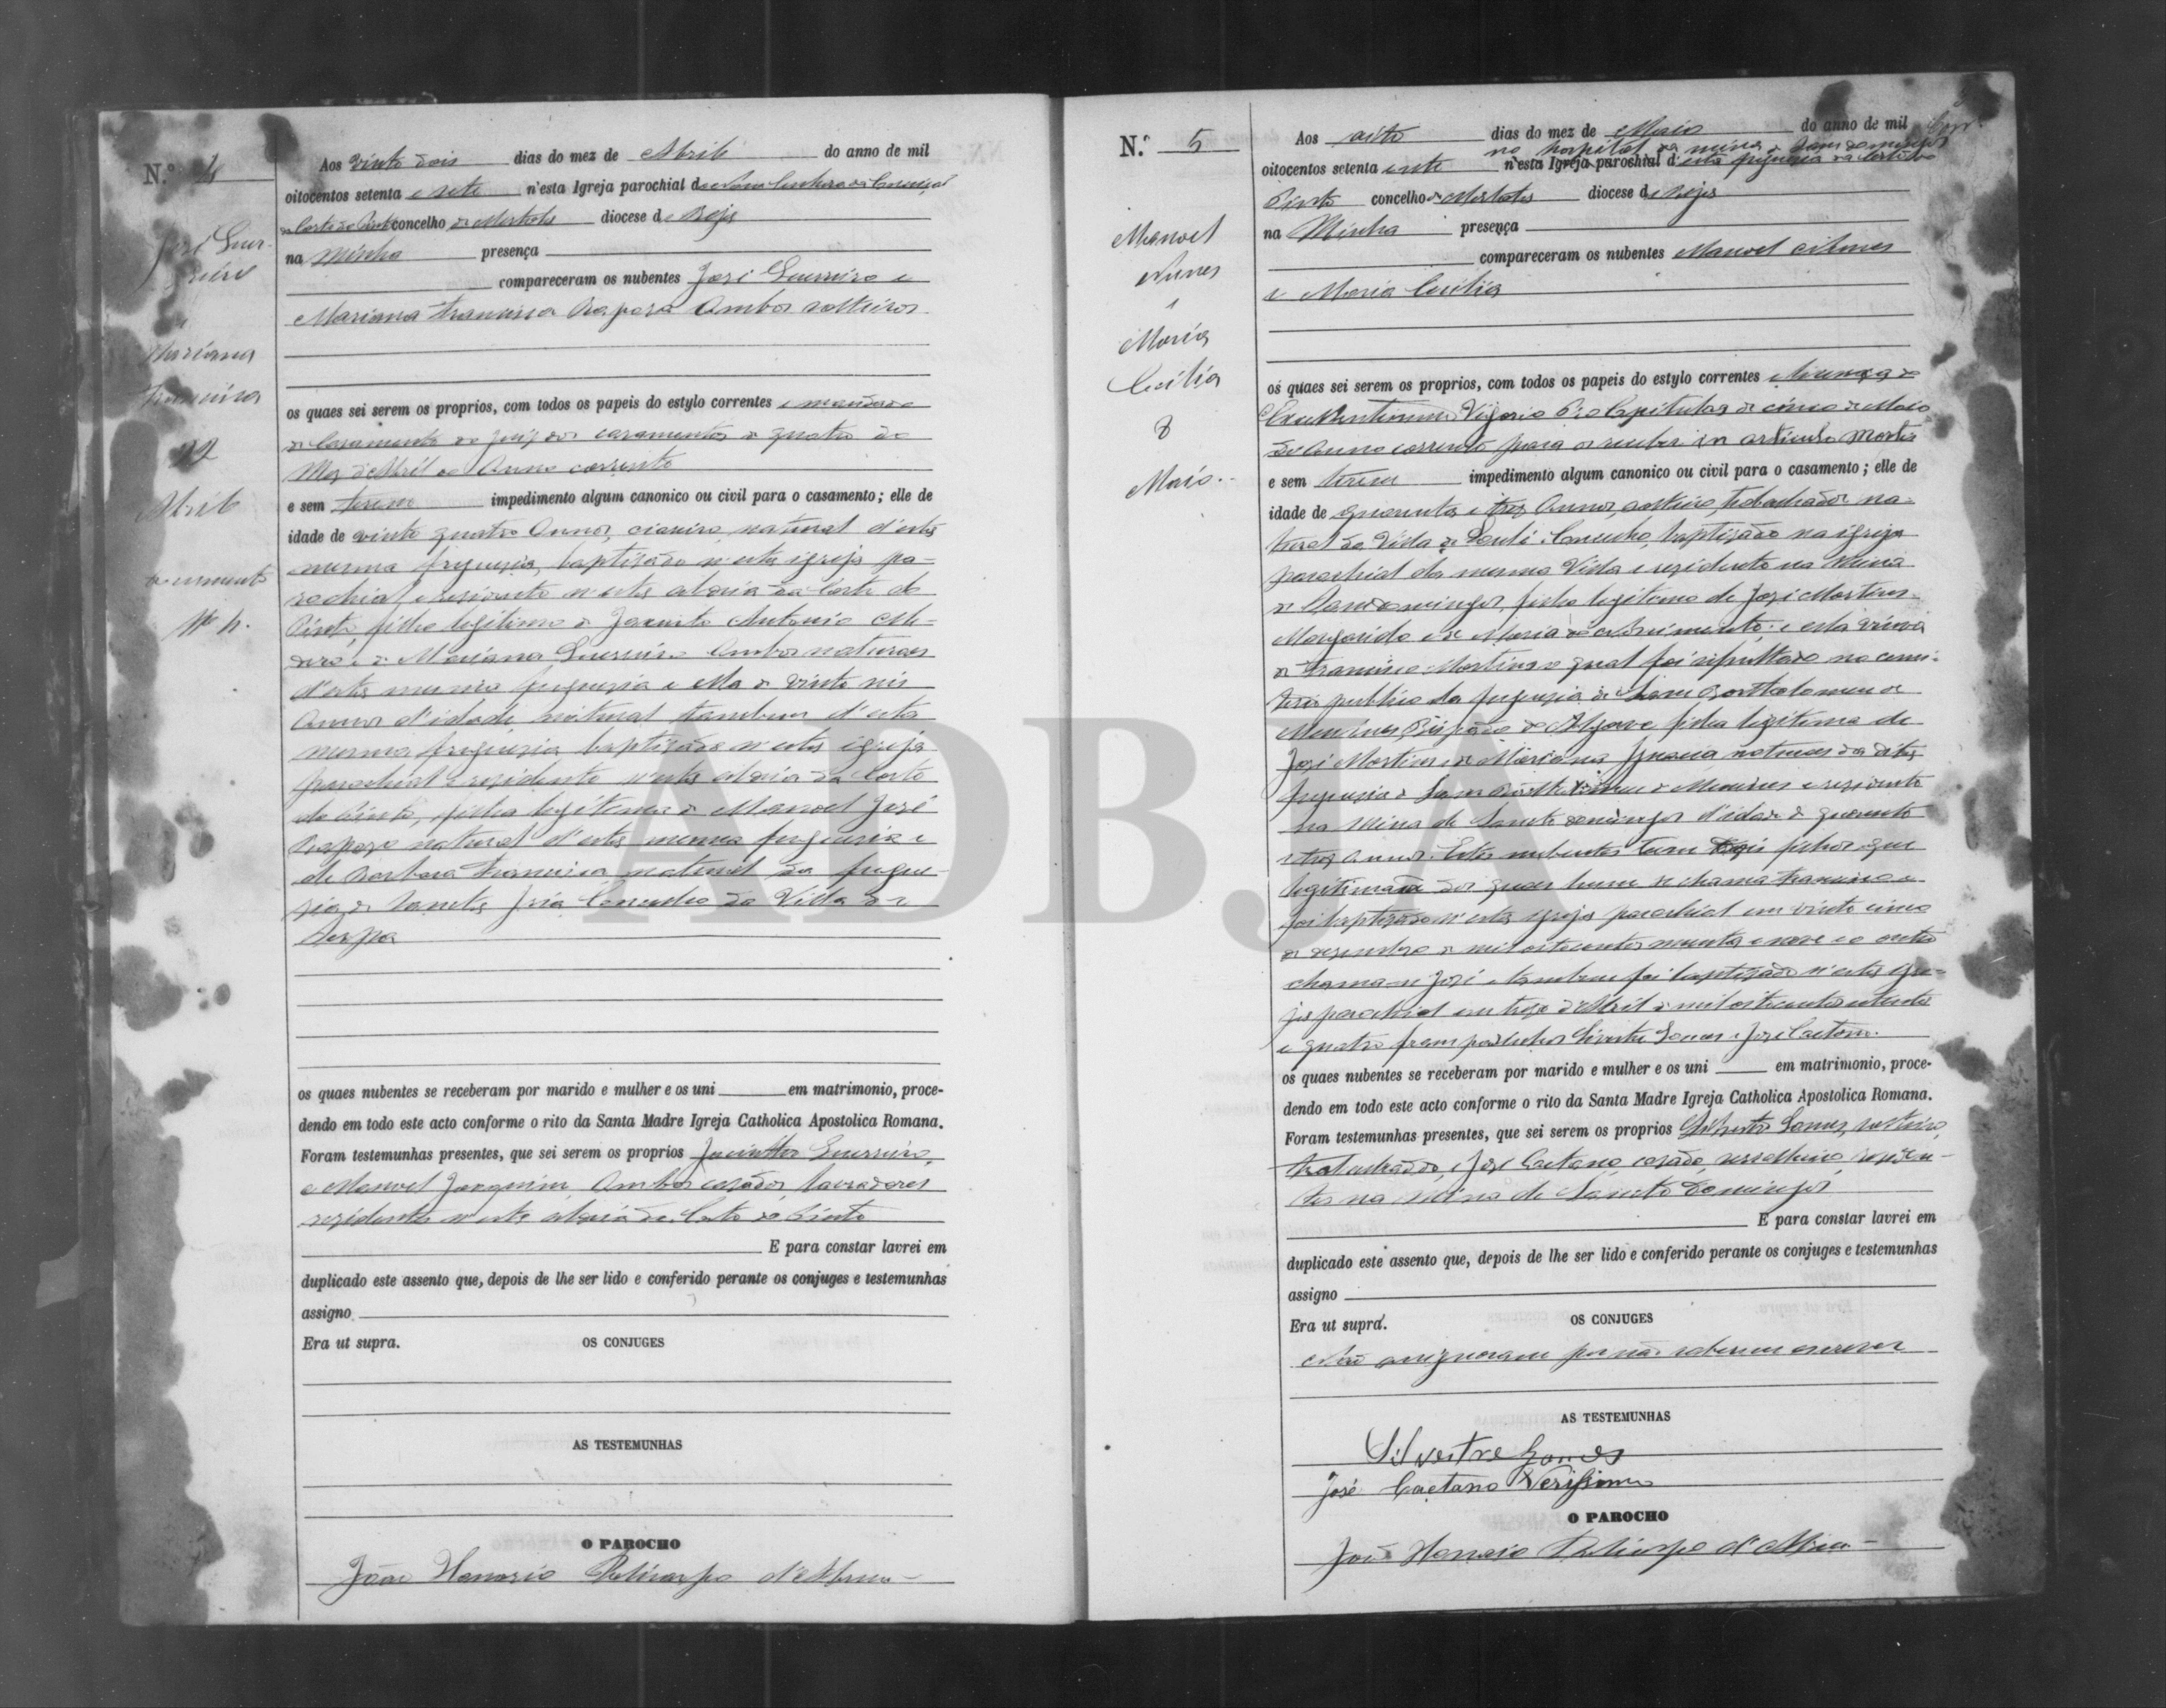 N.º 4
José Guer-
reiro
e
Mariana
Francisca
22
Abril
Aos vinte dois dias do mez de Abril do anno de mil
oitocentos setenta e sete n'esta Igreja parochial de Nossa Senhora da Conceição
da Corte do Pinto concelho de Mertola diocese de Beja
na Minha presença
compareceram os nubentes José Guerreiro e
Mariana Francisca Raposa Ambos solteiros
os quaes sei serem os proprios, com todos os papeis do estylo correntes e mandado
de Casamento do juiz dos casamentos de quatro do
Mez d'Abril do Anno corrente
e sem terem impedimento algum canonico ou civil para o casamento; elle de
idade de vinte quatro Annos, natural d'esta
mesma freguezia, baptizado n'esta igreja pa-
rochial, e residente n'esta aldeia da Corte do
Pinto, filho legitimo de Jacinto Antonio
e de Mariana Guerreiro Ambos naturaes
d'esta mesma freguezia e ella de vinte seis
Annos d'idade, natural tambem d'esta
mesma freguezia baptizada n'esta igreja
parochial e residente n'esta aldeia da Corte
do Pinto, filha legitima de Manoel José
Raposo natural d'esta mesma freguezia e
de Barbara Francisca natural da fregue-
zia de Sancta Iria Concelho da Villa de
Serpa
os quaes nubentes se receberam por marido e mulher e os uni em matrimonio, proce-
dendo em todo este acto conforme o rito da Santa Madre Igreja Catholica Apostolica Romana.
Foram testemunhas presentes, que sei serem os proprios Jacintho Guerreiro,
e Manoel Joaquim, Ambos casados, lavradores
residentes n'esta aldeia da Corte do Pinto
E para constar lavrei em
duplicado este assento que, depois de lhe ser lido e conferido perante os conjuges e testemunhas
assigno
Era ut supra. OS CONJUGES
AS TESTEMUNHAS
O PAROCHO
João Honorio Policarpo d'
N.º 5
Manoel
Nunes
e
Maria
Cecilia
8
Maio.
Aos oito dias do mez de Maio do anno de mil
no hospital da mina de Sam Domingos
oitocentos setenta e sete n'esta Igreja parochial d'esta freguezia da Corte do
Pinto concelho de Mertola diocese de Beja
na Minha presença
compareceram os nubentes Manoel Nunes
e Maria Cecilia
os quaes sei serem os proprios, com todos os papeis do estylo correntes e licença do
Excellentissimo Vigario Capitular de cinco de Maio
do Anno corrente para os receber in articulo mortis
e sem terem impedimento algum canonico ou civil para o casamento; elle de
idade de quarenta e tres Annos, solteiro, trabalhador na-
tural da Villa de Loulé Concelho, baptizado na igreja
parochial da mesma Villa e residente na Mina
de Sam Domingos, filho legitimo de José Martins
Margarido e de Maria do Nascimento; e ella viuva
de Francisco Martins o qual foi sepultado no cemi-
terio publico da freguezia de Sam Bartholomeu de
Messines, Bispado do Algarve filha legitima de
José Martins e de Mariana Ignacia naturaes da dita
freguezia de Sam Bartholomeu de Messines e residente
na Mina de Sancto Domingos d'idade de quarenta
e tres Annos. Estes nubentes tem dois filhos que
legitimam dos quaes hum se chama Francisco e
foi baptizado n'esta igreja parochial em vinte cinco
de dezembro de mil oitocentos e nove e o outro
chama-se José e tambem foi baptizado n'esta igre-
ja parochial em treze d'Abril de mil oitocentos setenta
e quatro foram padrinhos Silvestre Gomes e José Caetano.
os quaes nubentes se receberam por marido e mulher e os uni em matrimonio, proce-
dendo em todo este acto conforme o rito da Santa Madre Igreja Catholica Apostolica Romana.
Foram testemunhas presentes, que sei serem os proprios Silvestre Gomes, solteiro,
trabalhador, e José Caetano, casado, residen-
tes na Mina de Sancto Domingos
E para constar lavrei em
duplicado este assento que, depois de lhe ser lido e conferido perante os conjuges e testemunhas
assigno
Era ut supra. OS CONJUGES
Não assignaram por não saberem escrever
AS TESTEMUNHAS
Silvestre Gomes
José Caetano Verissimo
O PAROCHO
João Honorio Policarpo d'
ADBJA